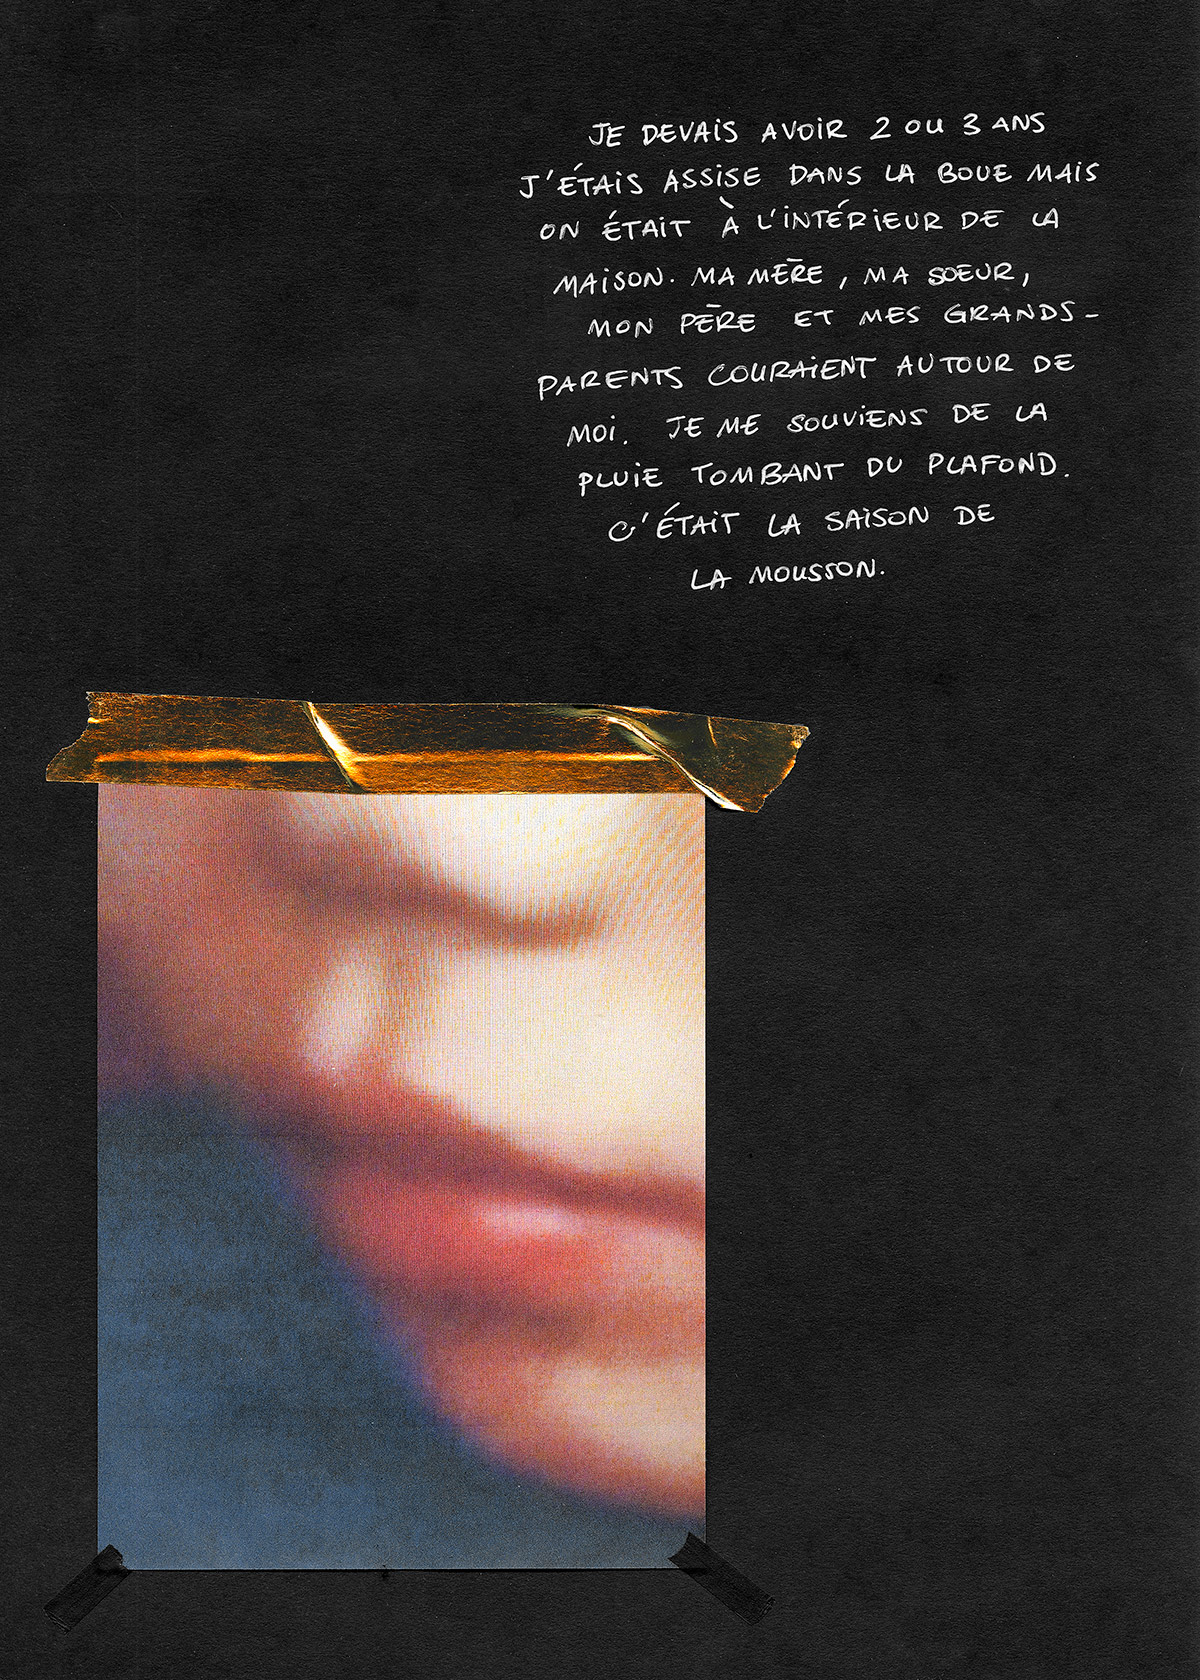 JE DEVAIS AVOIR 2 OU 3 ANS
J'ÉTAIS ASSISE DANS LA BOUE MAIS
ON ÉTAIT À L'INTÉRIEUR DE LA
MAISON. MA MÈRE, MA SOEUR,
MON PÈRE ET MES GRANDS-
PARENTS COURAIENT AUTOUR DE
MOI. JE ME SOUVIENS DE LA
PLUIE TOMBANT DU PLAFOND.
C'ÉTAIT LA SAISON DE
LA MOUSSON.